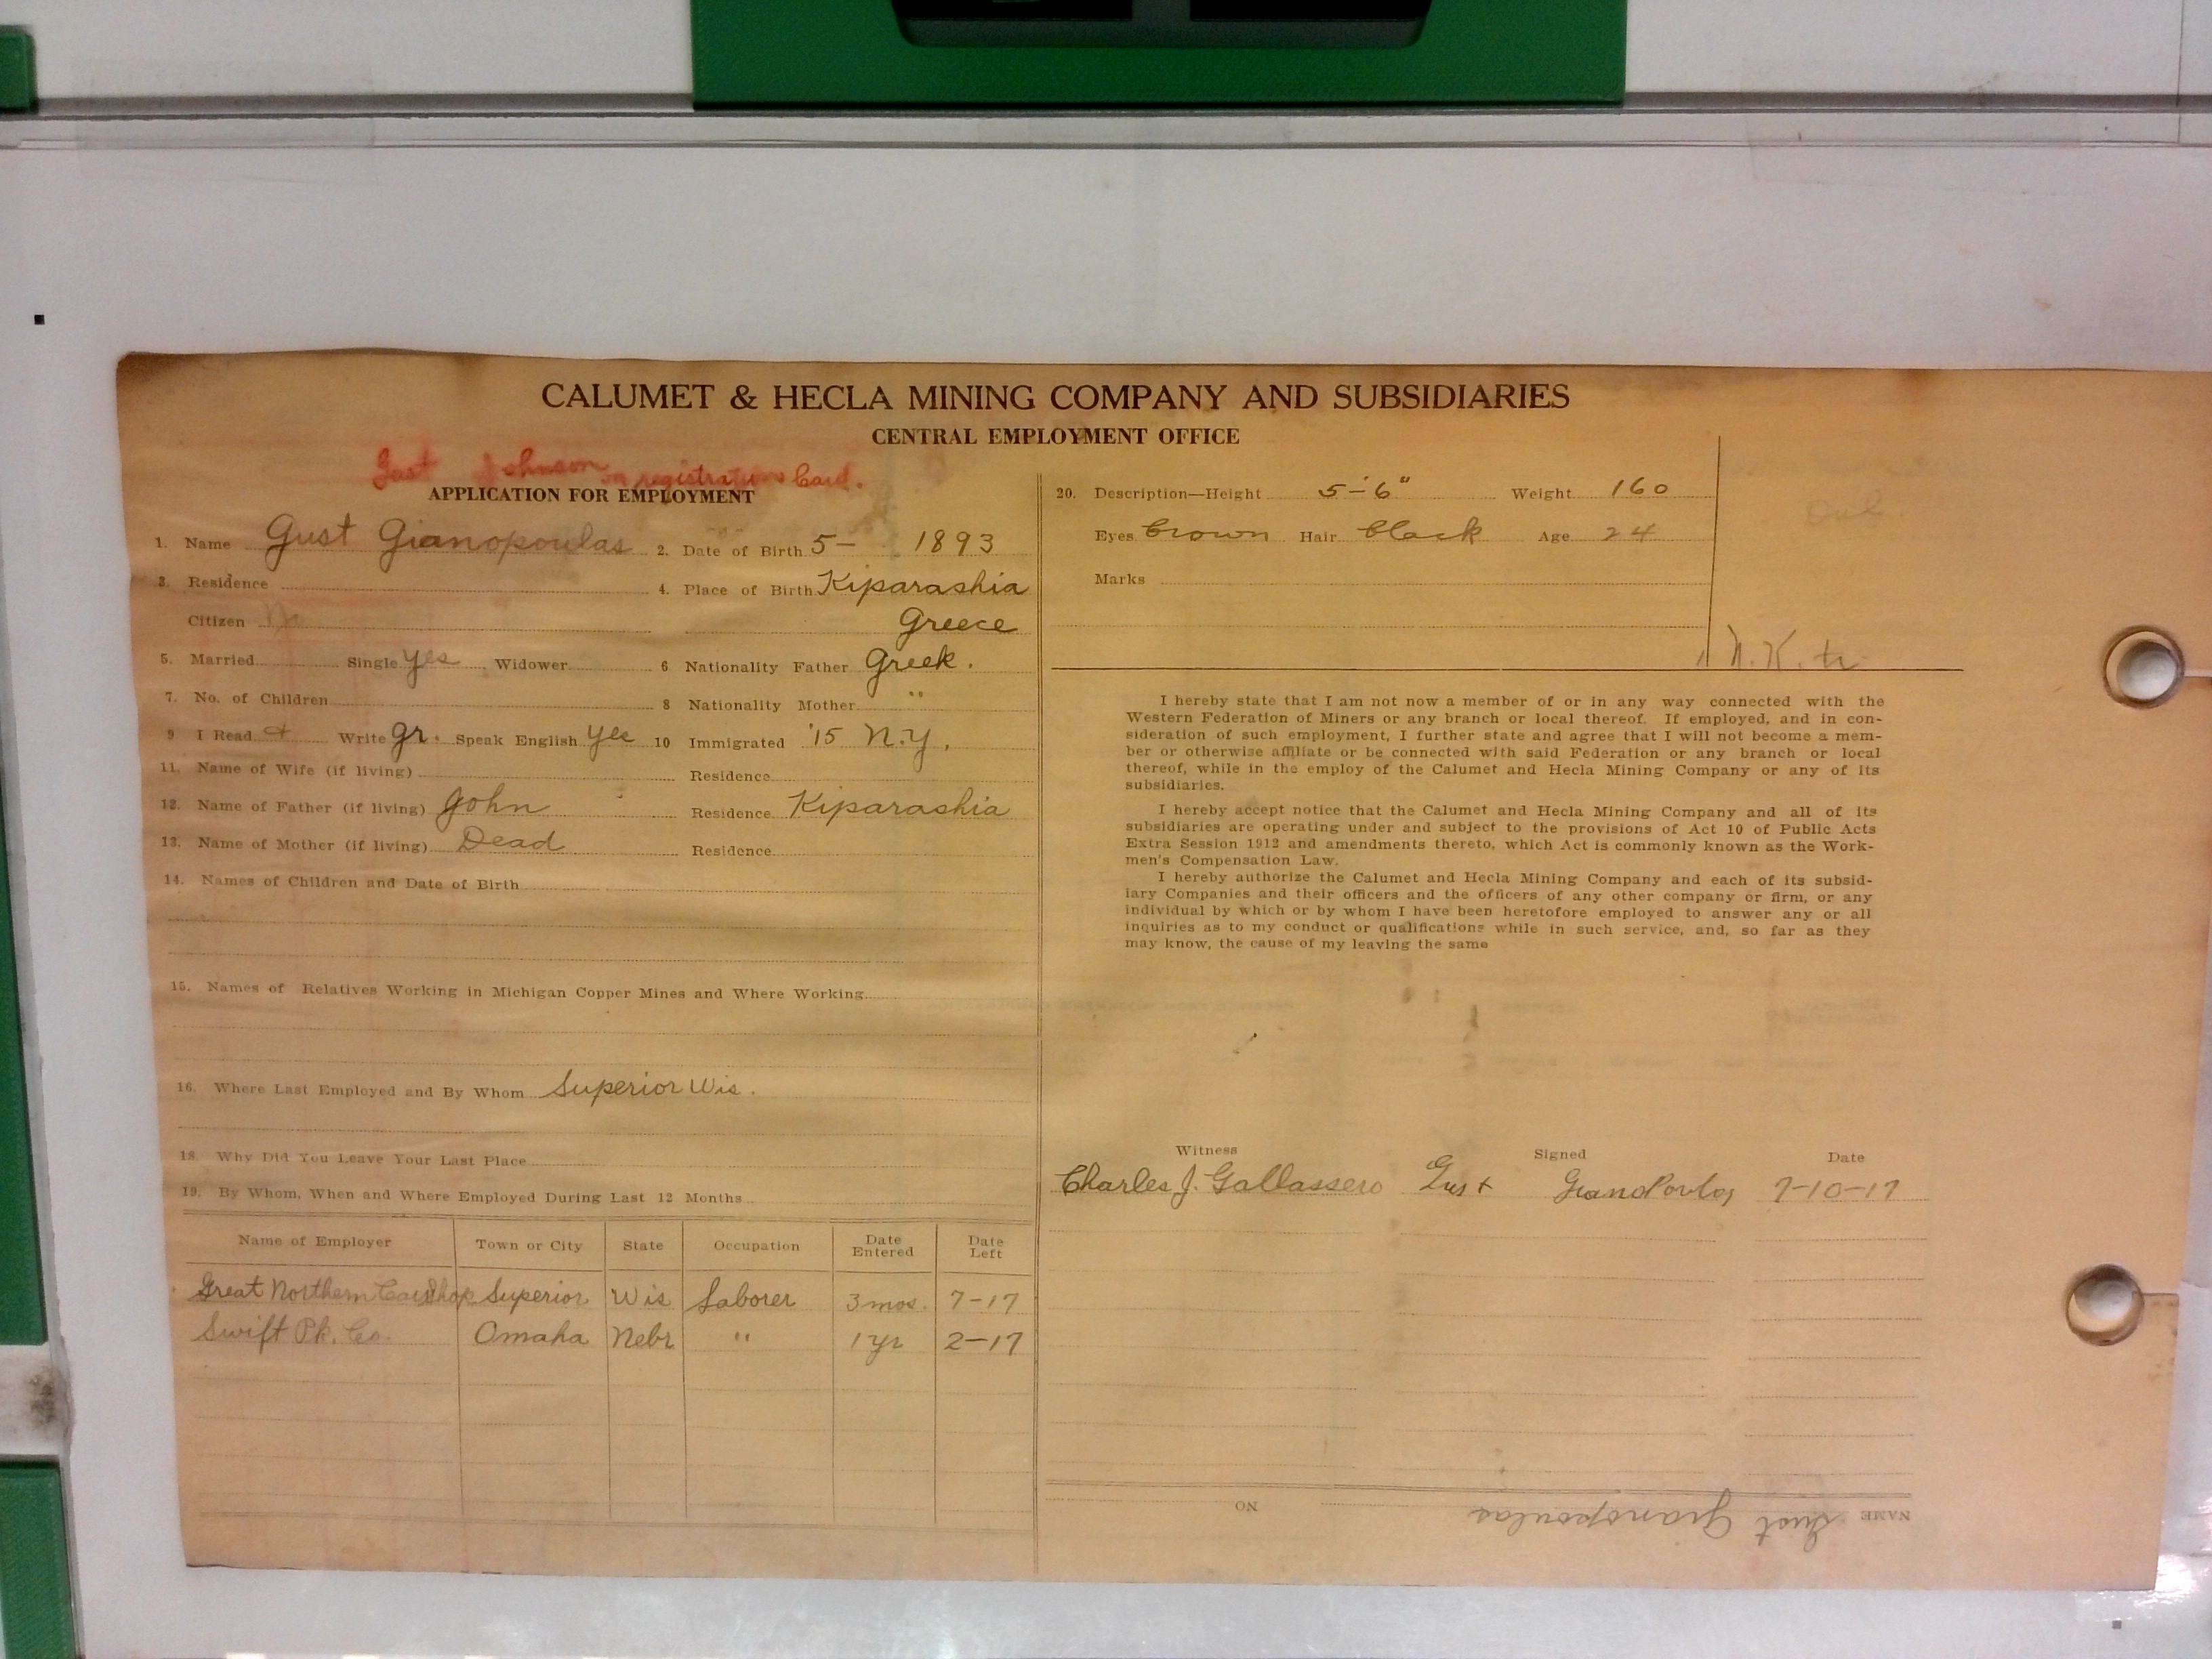 CALUMET & HECLA MINING COMPANY AND SUBSIDIARIES
CENTRAL EMPLOYMENT OFFICE
Gust Johnson on registration Card.
APPLICATION FOR EMPLOYMENT
1. Name Gust Gianopoulas 2. Date of Birth 5- 1893
3. Residence 4. Place of Birth Kiparashia
Citizen No Greece
5. Married Single yes Widower 6 Nationality Father Greek.
7. No. of Children 8 Nationality Mother "
9 I Read + Write gr. Speak English yes 10 Immigrated '15 N.Y.
11. Name of Wife (if living) Residence
12. Name of Father (if living) John Residence Kiparashia
13. Name of Mother (if living) Dead Residence
14. Names of Children and Date of Birth
15. Names of Relatives Working in Michigan Copper Mines and Where Working
16. Where Last Employed and By Whom Superior Wis.
18. Why Did You Leave Your Last Place
19. By Whom, When and Where Employed During Last 12 Months
Name of Employer Town or City State Occupation Date Entered Date Left
Great Northern Car Shop Superior Wis Laborer 3 mos. 7-17
Swift Pk. Co. Omaha Nebr " 1 yr 2-17
20. Description—Height 5-6" Weight 160
Eyes brown Hair black Age 24
Marks
N.K. tr
I hereby state that I am not now a member of or in any way connected with the
Western Federation of Miners or any branch or local thereof. If employed, and in con-
sideration of such employment, I further state and agree that I will not become a mem-
ber or otherwise affiliate or be connected with said Federation or any branch or local
thereof, while in the employ of the Calumet and Hecla Mining Company or any of its
subsidiaries.
I hereby accept notice that the Calumet and Hecla Mining Company and all of its
subsidiaries are operating under and subject to the provisions of Act 10 of Public Acts
Extra Session 1912 and amendments thereto, which Act is commonly known as the Work-
men's Compensation Law.
I hereby authorize the Calumet and Hecla Mining Company and each of its subsid-
iary Companies and their officers and the officers of any other company or firm, or any
individual by which or by whom I have been heretofore employed to answer any or all
inquiries as to my conduct or qualifications while in such service, and, so far as they
may know, the cause of my leaving the same
Witness Signed Date
Charles J. Gallassero Gust GianoPoulos 7-10-17
NAME Gust Gianopoulas NO